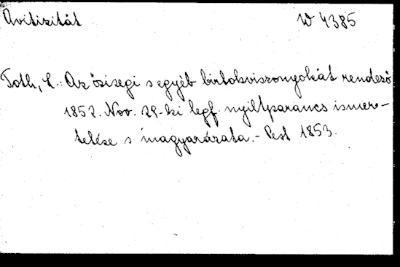 Avitizitát W 4385
Toth, L.: Az ősiségi s egyéb birtokviszonyokát rendező
1852. Nov. 29-ki legf. nyiltparancs ismer-
tetése s magyarázata. - Pest 1853.